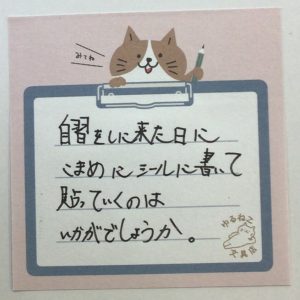 みてね
自習をしに来た日に
こまめにシールに書いて
貼っていくのは
いかがでしょうか。
ゆるねこ
文具店